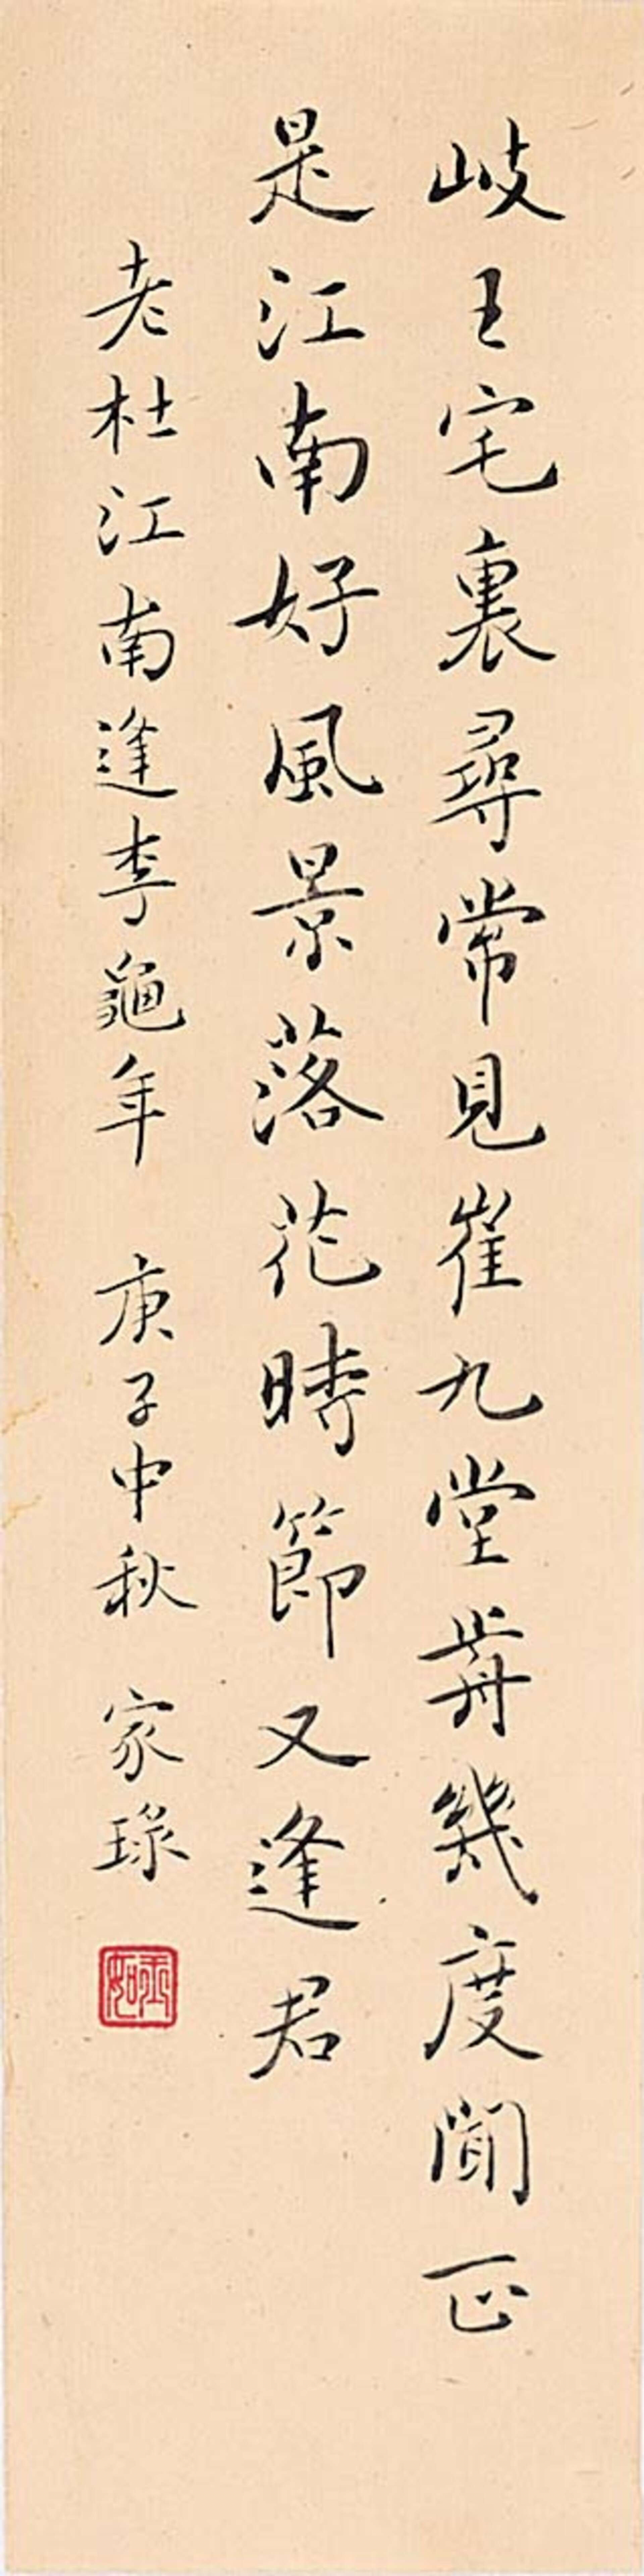 岐王宅裏尋常見崔九堂前幾度聞正
是江南好風景落花時節又逢君
老杜江南逢李龜年 庚子中秋 家琭